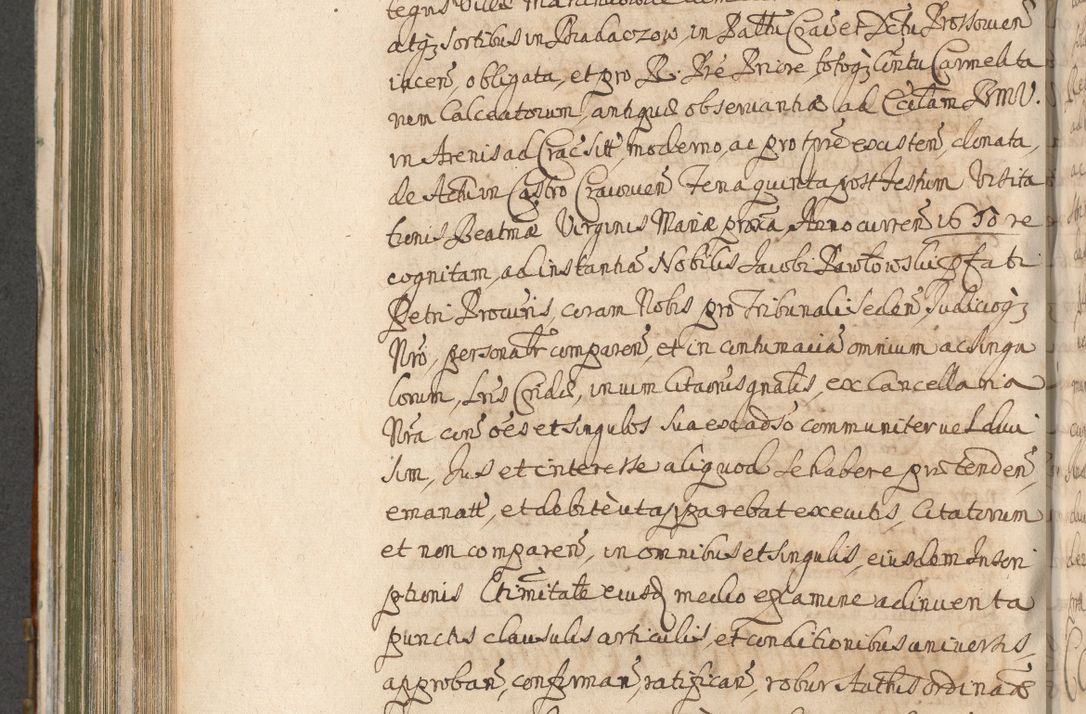 atq; sortibus in Biadaczow, in Palttu Crac et Dctu Prossovien
iacen, obligata, et pro R. Pre Priore totoq; Cintu Carmelita
rum Calceatorum, antiquæ observantiæ ad Ecclam BMV.
in Arenis ad Crac sitt, moderno, ac pro tpre existen, donata,
de Actu in Castro Cracovien Feria quinta post Festum Visita
tionis Beatmæ Virginis Mariæ proxa Anno curren 1650 re
cognitam, ad instantia Nobilis Jacobi Pawłowski pfati
Petri Procuris, coram Nobis pro Tribunali seden, Judicioq;
Nro, personalr comparen, et in contumacia omnium ac singu
lorum, Lris Cridæ, in vim Citaoris gnalis, ex Cancellaria
Nra con oes et singulos sua ex adso communiter vel divi
sim, Jus et interesse aliquod se habere prætenden,
emanatt, et debitè uta pparebat executis, Citatorum
et non comparen, in omnibus et singulis, eiusdem Inscri
ptionis Ctimitate eiusq medio examine adinventa
punctis clausulis articulis, et conditionibus universis,
approban, confirman, ratifican, robur Authis ordinaæ